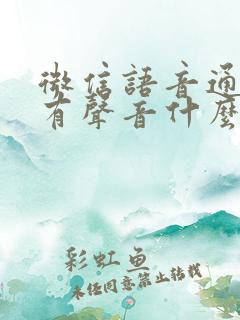 微信語音通
有聲音什麼
彩虹魚
未经同意禁止转载